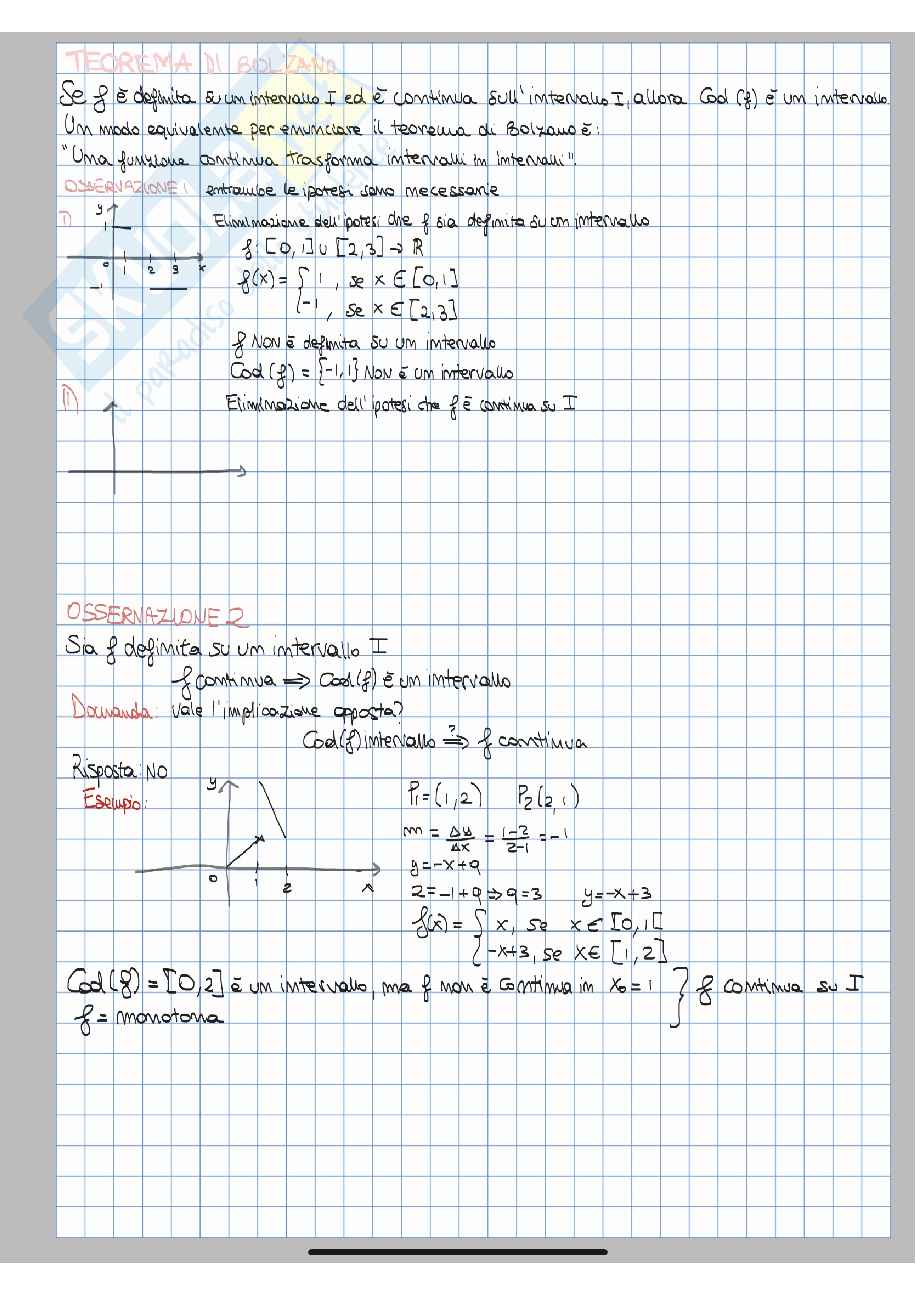 TEOREMA DI BOLZANO
Se f è definita su un intervallo I ed è continua sull'intervallo I, allora Cod (f) è un intervallo.
Un modo equivalente per enunciare il teorema di Bolzano è:
"Una funzione continua trasforma intervalli in intervalli".
OSSERVAZIONE 1 entrambe le ipotesi sono necessarie
I) Eliminazione dell'ipotesi che f sia definita su un intervallo
y
1
0 1 2 3 x
-1
f: [0,1] ∪ [2,3] → R
f(x) = { 1, se x ∈ [0,1]
-1, se x ∈ [2,3]
f NON è definita su un intervallo
Cod (f) = {-1,1} NON è un intervallo
II) Eliminazione dell'ipotesi che f è continua su I
OSSERVAZIONE 2
Sia f definita su un intervallo I
f continua ⟹ Cod(f) è un intervallo
Domanda: vale l'implicazione opposta?
Cod(f) intervallo ?⟹ f continua
Risposta: NO
Esempio:
y
0 1 2 x
P1=(1,2) P2(2,1)
m = Δy/Δx = 1-2/2-1 = -1
y=-x+q
2=-1+q ⇒ q=3 y=-x+3
f(x) = { x, se x ∈ [0,1[
-x+3, se x ∈ [1,2]
Cod(f) = [0,2] è un intervallo, ma f non è continua in x0 = 1 } f continua su I
f = monotona
SKUOLA.net
il paradiso dello studente